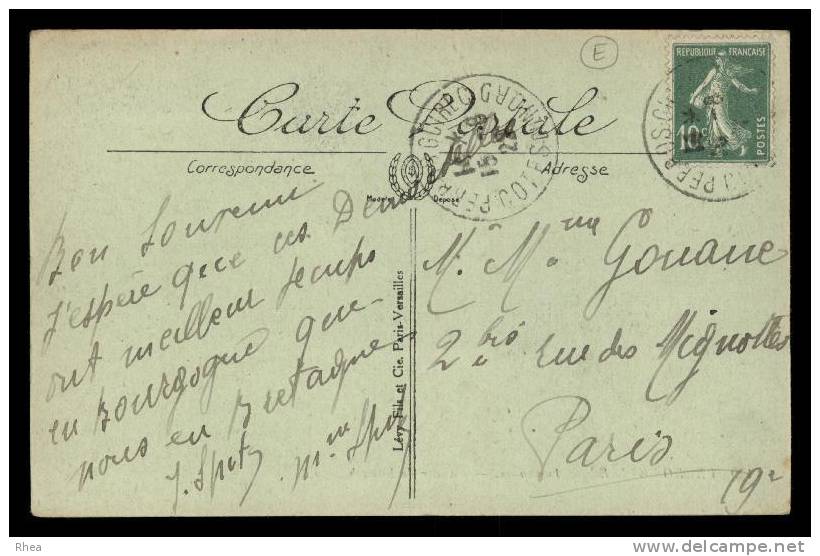 E
Carte Postale
Correspondance
Adresse
Modèle Déposé
REPUBLIQUE FRANÇAISE
10c
POSTES
Bon Souvenir
J'espère que ces Demoiselles
ont meilleur temps
en Bourgogne que
nous en Bretagne
J. Spitz Mme Spitz
Lévy Fils et Cie. Paris-Versailles
M. Mme Gouane
2 bis rue des Mignottes
Paris
19e
Rhea
www.delcampe.net